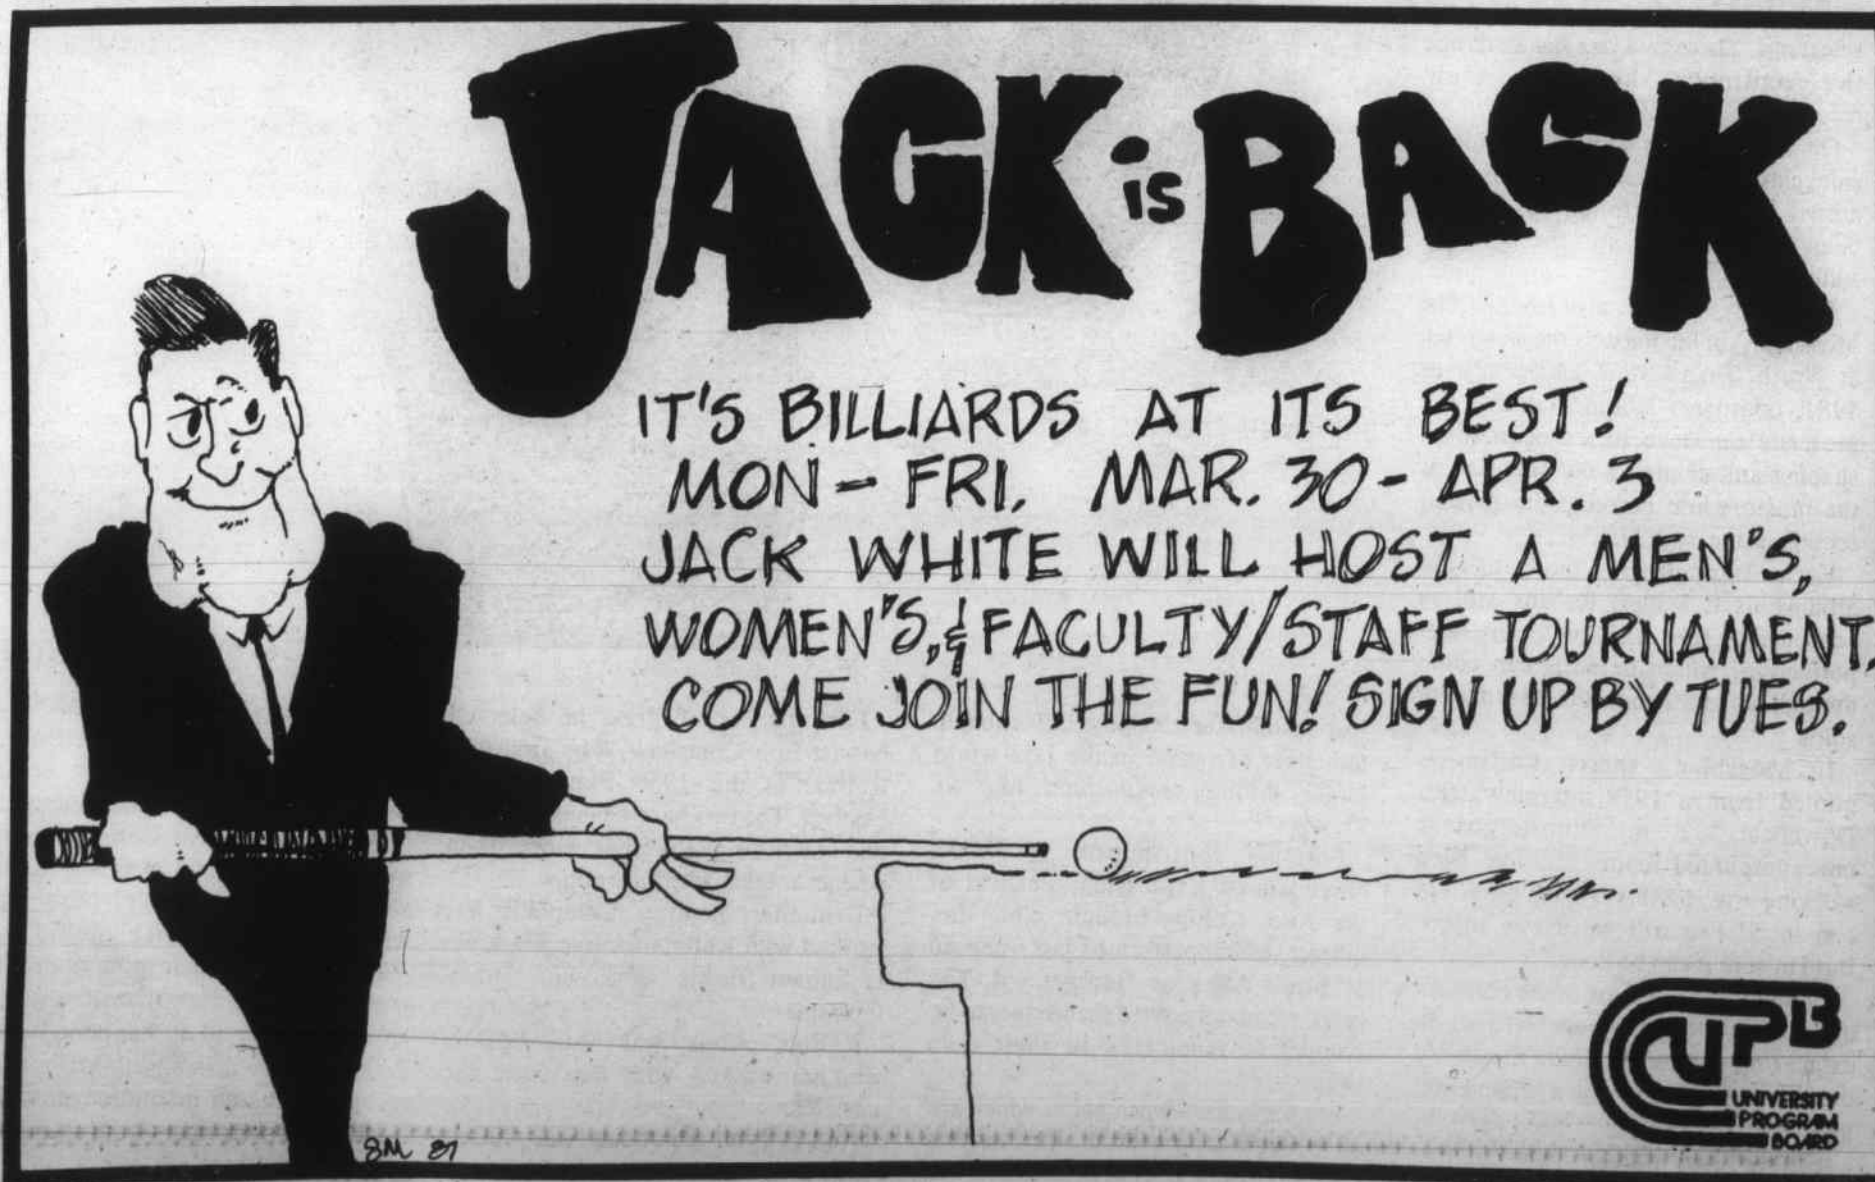 JACK is BACK
IT'S BILLIARDS AT ITS BEST!
MON - FRI, MAR. 30 - APR. 3
JACK WHITE WILL HOST A MEN'S,
WOMEN'S, & FACULTY/STAFF TOURNAMENT.
COME JOIN THE FUN! SIGN UP BY TUES.
UPB
UNIVERSITY
PROGRAM
BOARD
SM 87